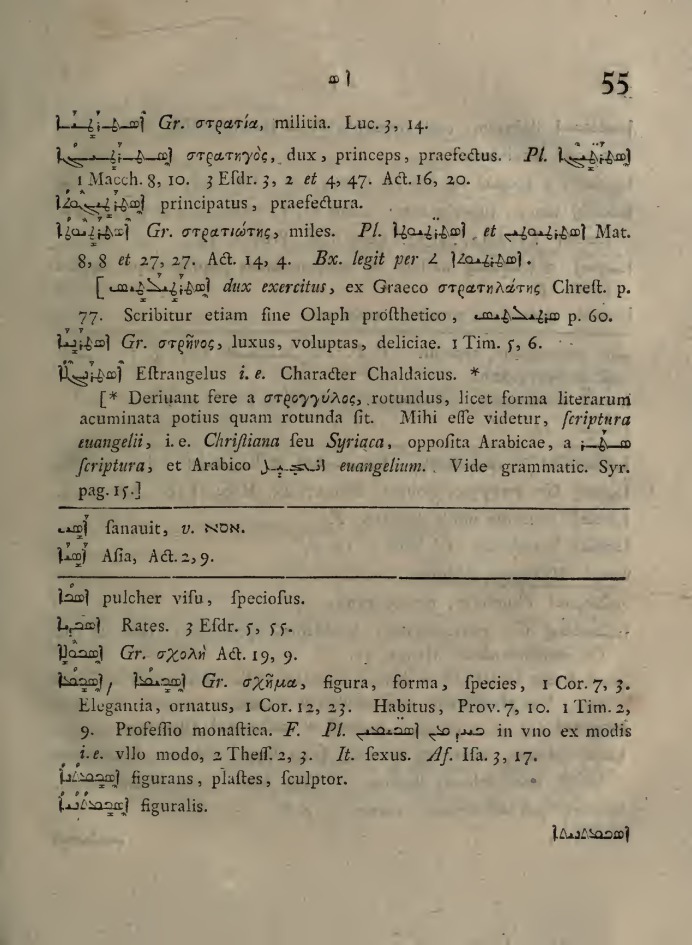 ܐܣ 55
ܐܣܛܪܛܝܐ Gr. στρατία, militia. Luc. 3, 14.
ܐܣܛܪܛܓܐ στρατηγὸς, dux, princeps, praefectus. Pl. ܐܣܛܪ̈ܛܓܐ
1 Macch. 8, 10. 3 Esdr. 3, 2 et 4, 47. Act. 16, 20.
principatus, praefectura.
ܐܣܛܪܛܝܘܛܐ Gr. στρατιώτης, miles. Pl. ܐܣܛܪ̈ܛܝܘܛܐ et Mat.
8, 8 et 27, 27. Act. 14, 4. Bx. legit per
[ dux exercitus, ex Graeco στρατηλάτης Chrest. p.
77. Scribitur etiam sine Olaph prosthetico, ܣܛܪܛܝܠܛܝܣ p. 60.
ܐܣܛܪܢܝܐ Gr. στρῆνος, luxus, voluptas, deliciae. 1 Tim. 5, 6.
ܐܣܛܪܢܓܠܐ Estrangelus i. e. Character Chaldaicus. *
[* Deriuant fere a στρογγύλος, rotundus, licet forma literarum
acuminata potius quam rotunda sit. Mihi esse videtur, scriptura
euangelii, i. e. Christiana seu Syriaca, opposita Arabicae, a ܣܛܪ
scriptura, et Arabico euangelium. Vide grammatic. Syr.
pag. 15.]
ܐܣܝ sanauit, v. אסא.
ܐܣܝܐ Asia, Act. 2, 9.
pulcher visu, speciosus.
ܐܣܟܕܝܐ Rates. 3 Esdr. 5, 55.
ܐܣܟܘܠܐ Gr. σχολὴ Act. 19, 9.
ܐܣܟܡܐ, ܐܣܟܝܡܐ Gr. σχῆμα, figura, forma, species, 1 Cor. 7, 3.
Elegantia, ornatus, 1 Cor. 12, 23. Habitus, Prov. 7, 10. 1 Tim. 2,
9. Professio monastica. F. Pl. ܐܣܟܝ̈ܡܝܢ ܚܕ ܡܢ in vno ex modis
i. e. vllo modo, 2 Thess. 2, 3. It. sexus. Af. Isa. 3, 17.
ܐܣܟܡܬܢܐ figurans, plastes, sculptor.
ܐܣܟܡܬܢܝܐ figuralis.
ܐܣܟܡܬܢܝܬܐ